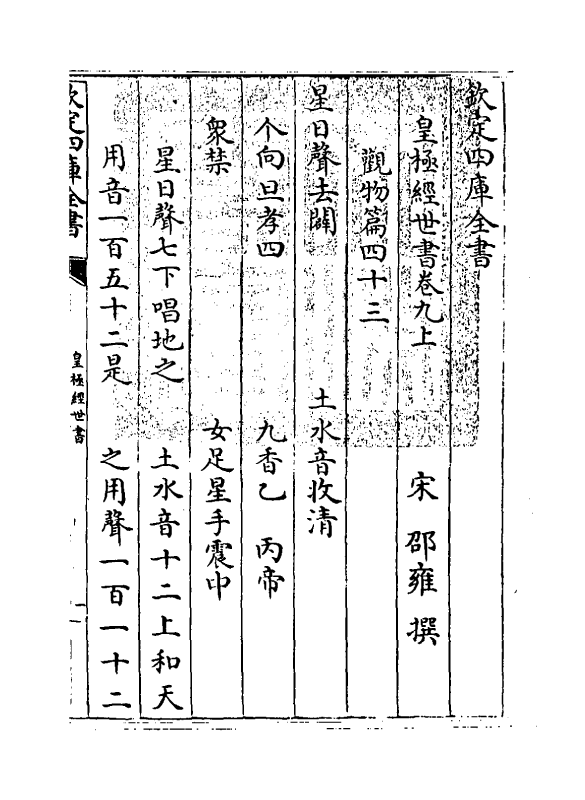 欽定四庫全書
皇極經世書卷九上
宋 邵雍 撰
觀物篇四十三
星日聲去闢 土水音收清
个向旦孝四 九香乙 丙帝
衆禁 女足星手震中
星日聲七下唱地之 土水音十二上和天
用音一百五十二是 之用聲一百一十二
欽定四庫全書
皇極經世書